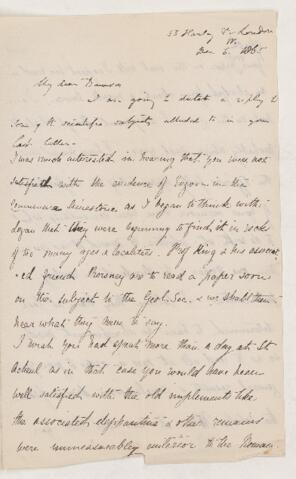 53 Harley St. London
W.
Dec 6. 1865
My dear Dawson
I am going to dictate a reply to
some of the scientific subjects alluded to in your
last letter.
I was much interested in hearing that you were not
satisfied with the evidence of Eozoon in the
limestone as I began to think with
Logan that they were beginning to find it in rocks
of too many ages & localities. Prof King & his associat
ed friend Rowney are to read a paper soon
on the subject to the Geol. Soc. & we shall then
hear what they have to say.
I wish you had spent more than a day at St
Acheul as in that case you would have been
well satisfied with the old implements like
the associated elephantine & other remains
were immeasurably anterior to the Roman